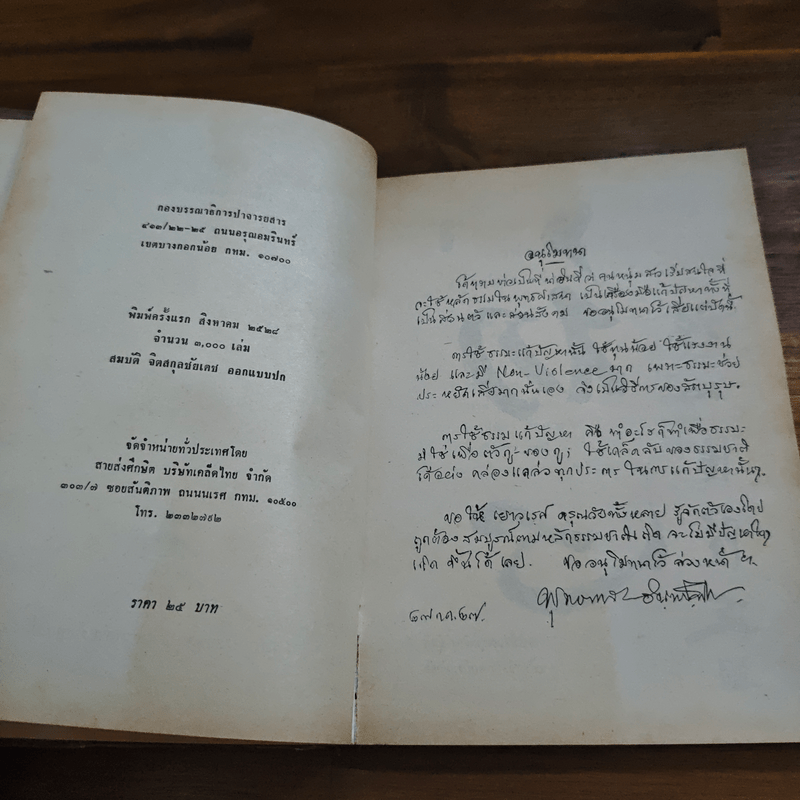 กองบรรณาธิการปาจารยสาร
๔๑๓/๒๒-๒๕ ถนนอรุณอมรินทร์
เขตบางกอกน้อย กทม. ๑๐๗๐๐
พิมพ์ครั้งแรก สิงหาคม ๒๕๒๘
จำนวน ๓,๐๐๐ เล่ม
สมบัติ จิตสกุลชัยเดช ออกแบบปก
จัดจำหน่ายทั่วประเทศโดย
สายส่งศึกษิต บริษัทเคล็ดไทย จำกัด
๓๐๓/๗ ซอยสันติภาพ ถนนนเรศ กทม. ๑๐๕๐๐
โทร. ๒๓๓๒๗๙๒
ราคา ๒๕ บาท
อนุโมทนา
ได้ทราบข่าวเป็นที่น่ายินดีว่า คนหนุ่มสาวเริ่มสนใจที่
จะใช้หลักธรรมในพุทธศาสนา เป็นเครื่องมือแก้ปัญหาทั้งที่
เป็นส่วนตัวและส่วนสังคม ขออนุโมทนาไว้ เสียแต่บัดนี้.
การใช้ธรรมะแก้ปัญหานั้น ใช้ทุนน้อย ใช้แรงงาน
น้อย และมี Non-Violence มาก เพราะธรรมะช่วย
ประหยัดเสียมากนั่นเอง จึงเป็นวิธีการของสัตบุรุษ.
การใช้ธรรมแก้ปัญหา คือ ทำอะไรก็ทำเพื่อธรรมะ
มิใช่เพื่อตัวกู-ของกู; ใช้เคล็ดลับของธรรมชาติ
ได้อย่างคล่องแคล่วทุกประการ ในการแก้ปัญหานั้นๆ.
ขอให้ เยาวเรศ ดรุณวัยทั้งหลาย รู้จักตัวเองโดย
ถูกต้อง สมบูรณ์ตามหลักธรรมชาติเถิด จะไม่มีปัญหาใดๆ
เกิดขึ้นได้เลย. ขออนุโมทนาไว้ล่วงหน้า
พุทธทาส อินทปัญโญ.
๒๗ ก.ค. ๒๗.